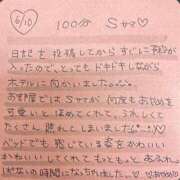 6/10
100分 Sサマ♡
日記を投稿してからすぐに予約が
入ったので、とってもドキドキしながら
ホテルに向かいました。
お部屋ではSサマが何度もおためを
可愛いとほめてくれて、うれしくて
たくさん照れとしまいました
ベッドでも感じている姿をかわいい
かわいいしてくれてもっともっとあふれ
の時間になっちゃいました